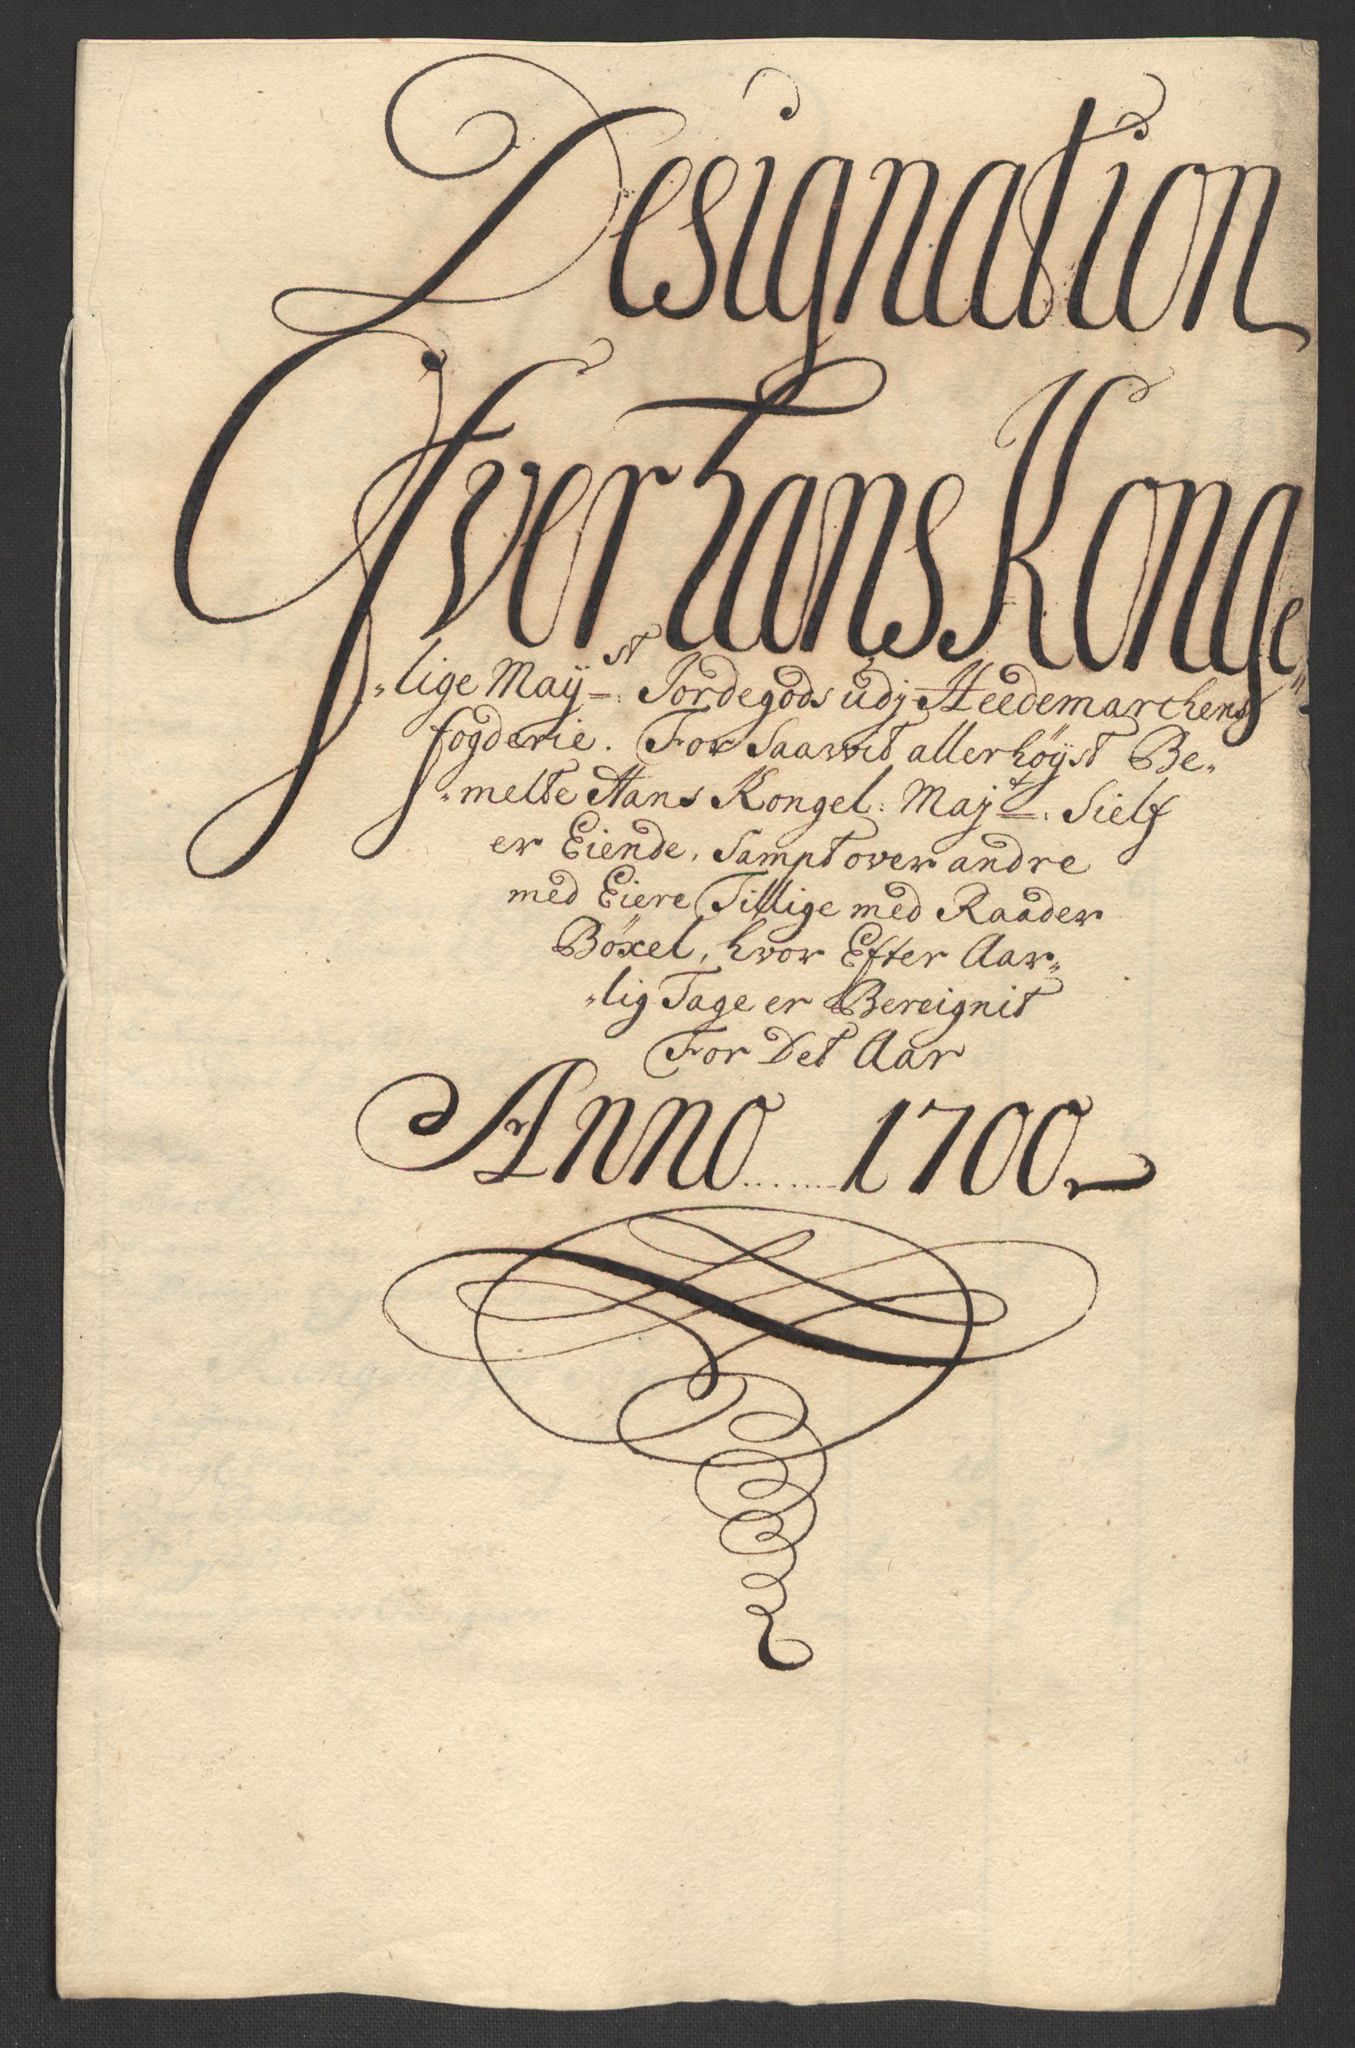 Designation
Ofver Hans Konge„
„lige Maÿst: Jordegods udj Heedemarchens
fogderie. For Saavit allerhöyst Be„
„melte Hans Kongel: Majt: Sielf
er Eiende, Sampt over andre
med Eiere Tillige med Raader
Böxel, hvor Efter Aar„
„lig Tage er Bereignit
For Det Aar
Anno ...... 1700